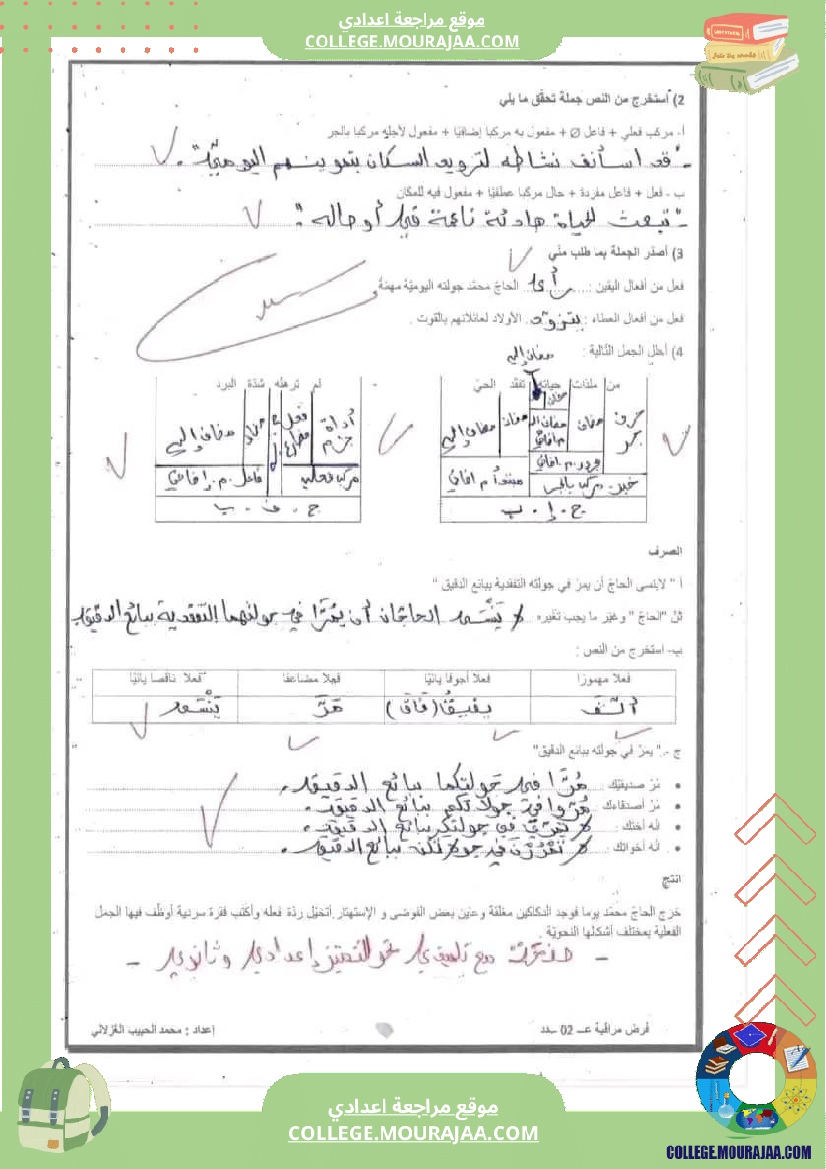 موقع مراجعة اعدادي
COLLEGE.MOURAJAA.COM
2) أستخرج من النص جملة تحقّق ما يلي
أ- مركب فعلي + فاعل Ø + مفعول به مركبا إضافيّا + مفعول لأجله مركبا بالجر
- "قد استأنف نشاطه لتزويد السكان بتموينهم اليوميّ".
ب - فعل + فاعل مفردة + حال مركبا عطفيّا + مفعول فيه للمكان
- "تبعث الحياة هادئة ناعمة في أوصاله".
3) أصدّر الجملة بما طلب منّي
فعل من أفعال اليقين : رأى الحاجّ محمّد جولته اليوميّة مهمّة
فعل من أفعال العطاء : يتزوّد الأولاد لعائلاتهم بالقوت .
4) أحلل الجمل التّالية :
مضاف إليه
من ملذات حياته تفقد الحيّ
لم ترهله شدّة البرد
حرف جر
مضاف
مضاف
مضاف إليه
أداة جزم
فعل مضارع
مضاف
مضاف إليه
مركب فعلي
فاعل م. إضافي
خبر مركب بالجر
مبتدأ م إضافي
ج . إ . ب
ج . ف . ب
الصرف
أ " لاينسى الحاجّ أن يمرّ في جولته التفقدية ببائع الدقيق "
ثنّ "الحاجّ " وغيّر ما يجب تغيّره لا يَنْسَى الحاجّان أن يمُرَّا في جولتهما التفقدية ببائع الدقيق
ب- استخرج من النّص :
فعلا مهموزا فعلا أجوفا يائيّا فعلا مضاعفا فعلا ناقصا يائيّا
يفيق (فاق) مَرَّ يَنْسَى
ج -" يمرّ في جولته ببائع الدقيق"
• مرْ صديقيْك : مُرَّا في جولتكما ببائع الدقيق.
• مرْ أصدقاءك : مُرّوا في جولاتكم ببائع الدقيق.
• انْه أختك : لا تمرّي في جولتك ببائع الدقيق.
• انْه أخواتك : لا تَمْرُرْنَ في جولاتكنّ ببائع الدقيق.
انتج
خرج الحاجّ محمّد يوما فوجد الدكاكين مغلقة وعاين بعض الفوضى و الإستهتار. أتخيّل ردّة فعله وأكتب فقرة سردية أوظّف فيها الجمل
الفعلية بمختلف أشكالها النحويّة
مع تلميذي نحو التميز إعدادي وثانوي -
فرض مراقبة عــ 02 ــدد
إعداد : محمد الحبيب الغزلاني
موقع مراجعة اعدادي
COLLEGE.MOURAJAA.COM
COLLEGE.MOURAJAA.COM